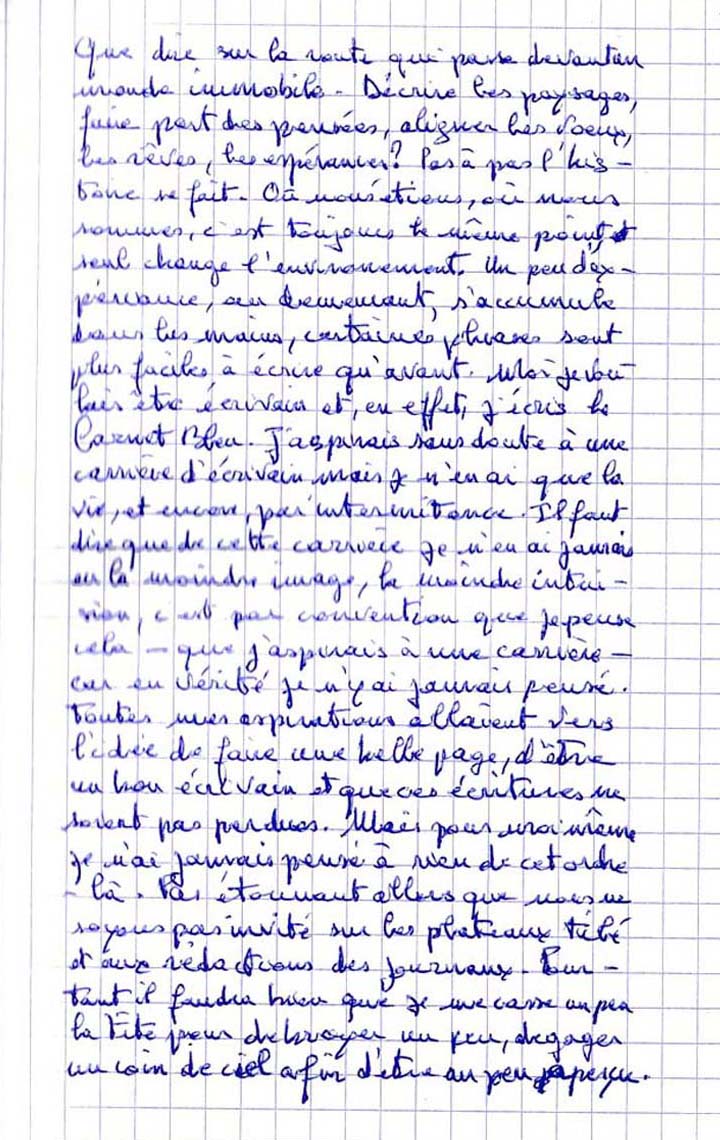 Que dire sur la route qui passe devant un
monde immobile - Décrire les paysages,
faire part des pensées, aligner les voeux,
les rêves, les espérances? Pas à pas l'his-
toire se fait. Où nous étions, où nous
sommes, c'est toujours le même point, et
seul change l'environnement. Un peu d'ex-
périence, au demeurant, s'accumule
dans les mains, certaines phrases sont
plus faciles à écrire qu'avant. Moi je vou-
lais être écrivain et, en effet, j'écris le
Carnet Bleu. J'aspirais sans doute à une
carrière d'écrivain mais je n'en ai que la
vie, et encore, par intermitence. Il faut
dire que de cette carrière je n'en ai jamais
eu la moindre image, la moindre intui-
sion, c'est par convention que je pense
cela - que j'aspirais à une carrière -
car en vérité je n'y ai jamais pensé.
Toutes mes aspirations allaient vers
l'idée de faire une belle page, d'être
un bon écrivain et que ces écritures ne
soient pas perdues. Mais pour moi même
je n'ai jamais pensé à rien de cet ordre
- là. Pas étonnant allors que nous ne
soyons pas invité sur les plateaux télé
et aux rédactions des journaux. Pour-
tant il faudra bien que je me casse un peu
la tête pour un peu, dégager
un coin de ciel afin d'être un peu aperçu.